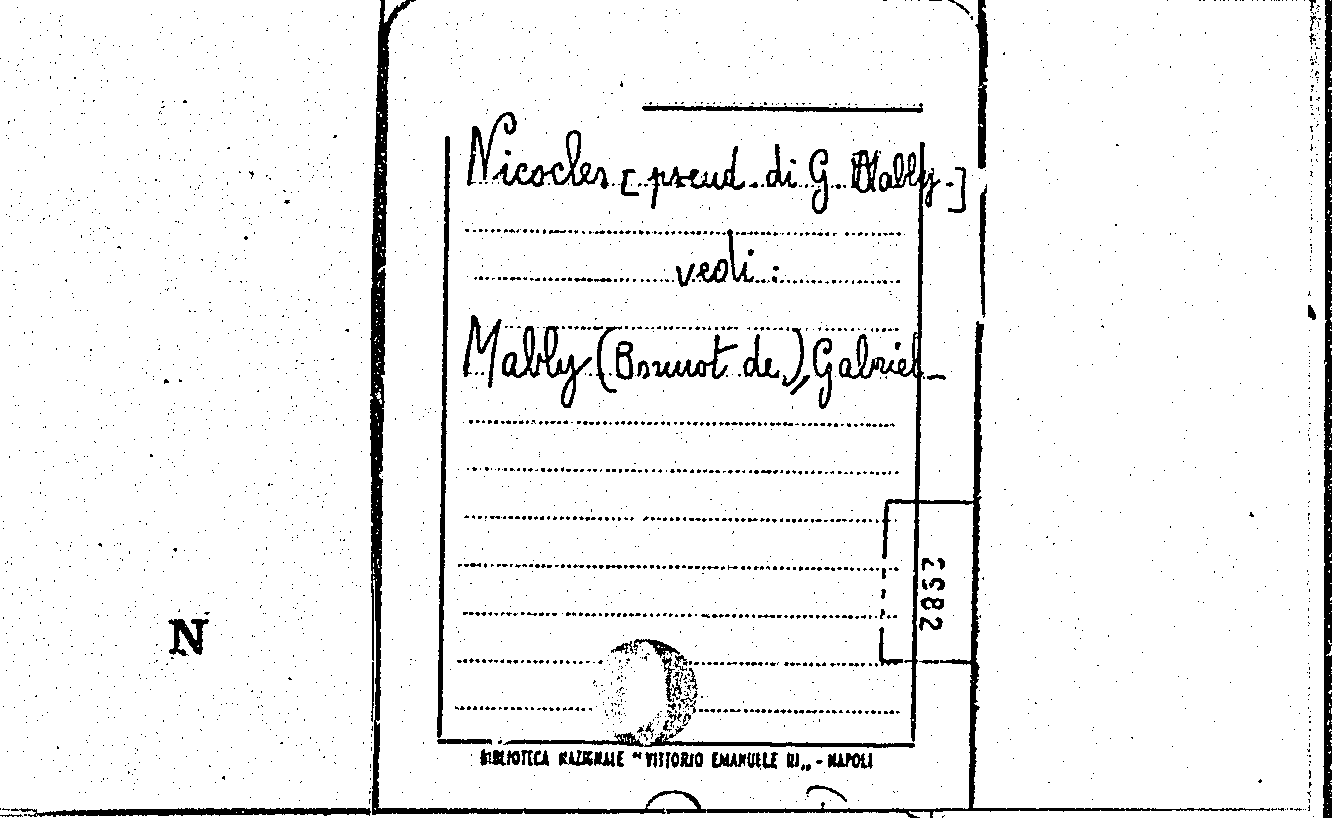 Nicocles [pseud. di G. Mably.]
vedi :
Mably (Bonnot de), Gabriel
2982
N
BIBLIOTECA NAZIONALE "VITTORIO EMANUELE III„ - NAPOLI